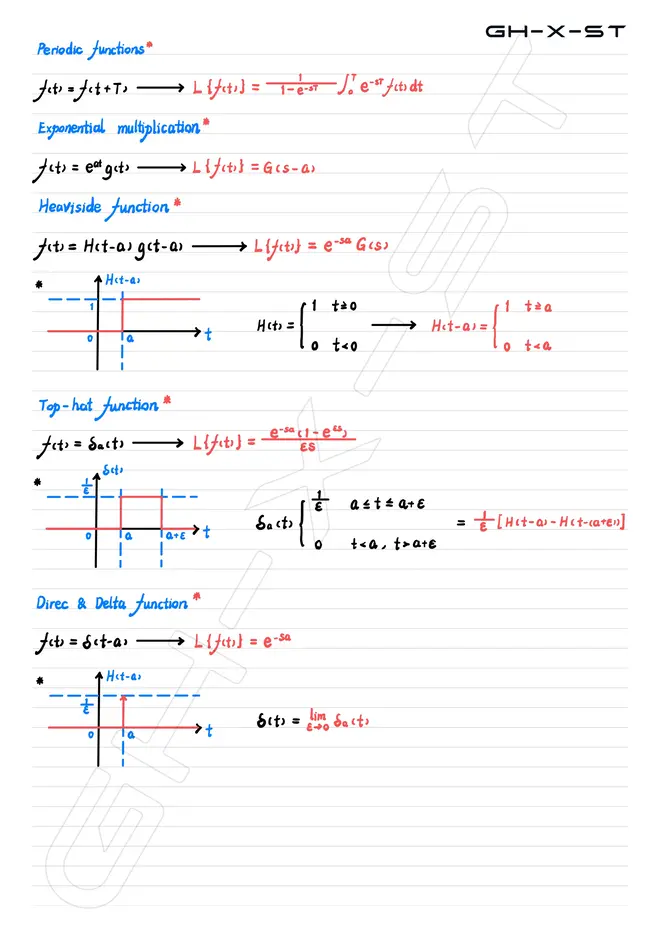 GH-X-ST
Periodic functions*
f(t) = f(t+T) ⟶ L{f(t)} = 1/(1-e^-sT) ∫₀ᵀ e^-sT f(t) dt
Exponential multiplication*
f(t) = e^at g(t) ⟶ L{f(t)} = G(s-a)
Heaviside function*
f(t) = H(t-a) g(t-a) ⟶ L{f(t)} = e^-sa G(s)
* H(t-a)
1
0 a t
H(t) = { 1 t≥0 ; 0 t<0 ⟶ H(t-a) = { 1 t≥a ; 0 t<a
Top-hat function*
f(t) = δa(t) ⟶ L{f(t)} = e^-sa (1-e^εs) / εs
* δ(t)
1/ε
0 a a+ε t
δa(t) { 1/ε a≤t≤a+ε ; 0 t<a, t>a+ε = 1/ε [H(t-a) - H(t-(a+ε))]
Direc & Delta function*
f(t) = δ(t-a) ⟶ L{f(t)} = e^-sa
* H(t-a)
1/ε
0 a t
δ(t) = lim ε→0 δa(t)
GH-X-IST